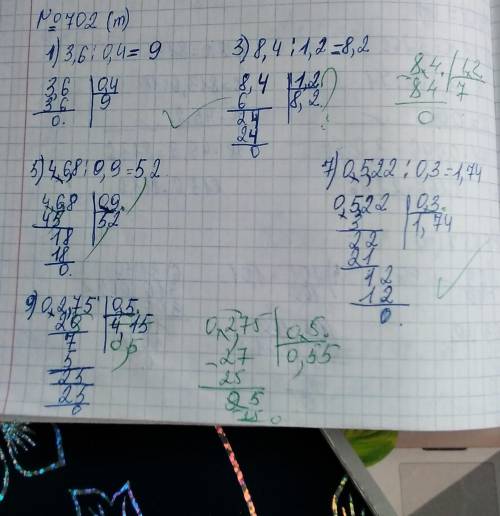 №702 (т)
1) 3,6 : 0,4 = 9
3,6 | 0,4
36 | 9
0.
3) 8,4 : 1,2 = 8,2
8,4 | 1,2
6 | 8,2
24
24
0
8,4 | 1,2
- 84 | 7
0
5) 4,68 : 0,9 = 5,2
4,68 | 0,9
45 | 5,2
18
18
0.
7) 0,522 : 0,3 = 1,74
0,522 | 0,3
3 | 1,74
22
21
12
12
0.
9) 0,275 | 0,5
20 | 4,15
7
5
25
25
0
0,275 | 0,5
- 27 | 0,55
25
25
25
0